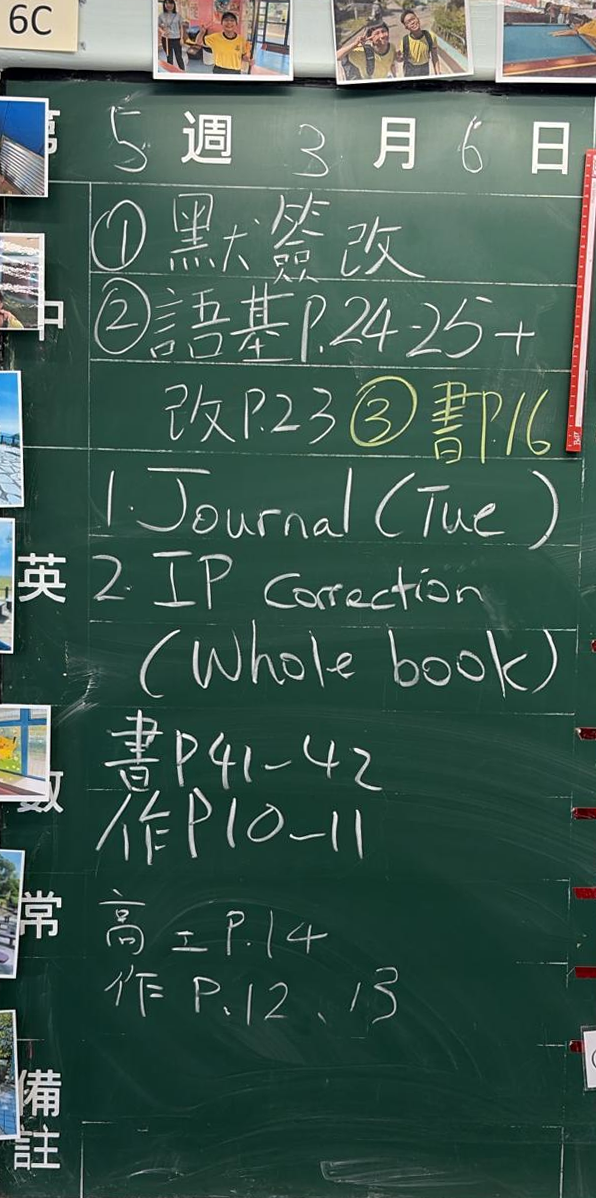 6C
第 5 週 3 月 6 日
中
① 默簽改
② 語基P.24-25+
改P.23 ③ 書P.16
英
1. Journal (Tue)
2. IP Correction
(Whole book)
數
書P41-42
作P10-11
常
高工P.14
作P.12、13
備註